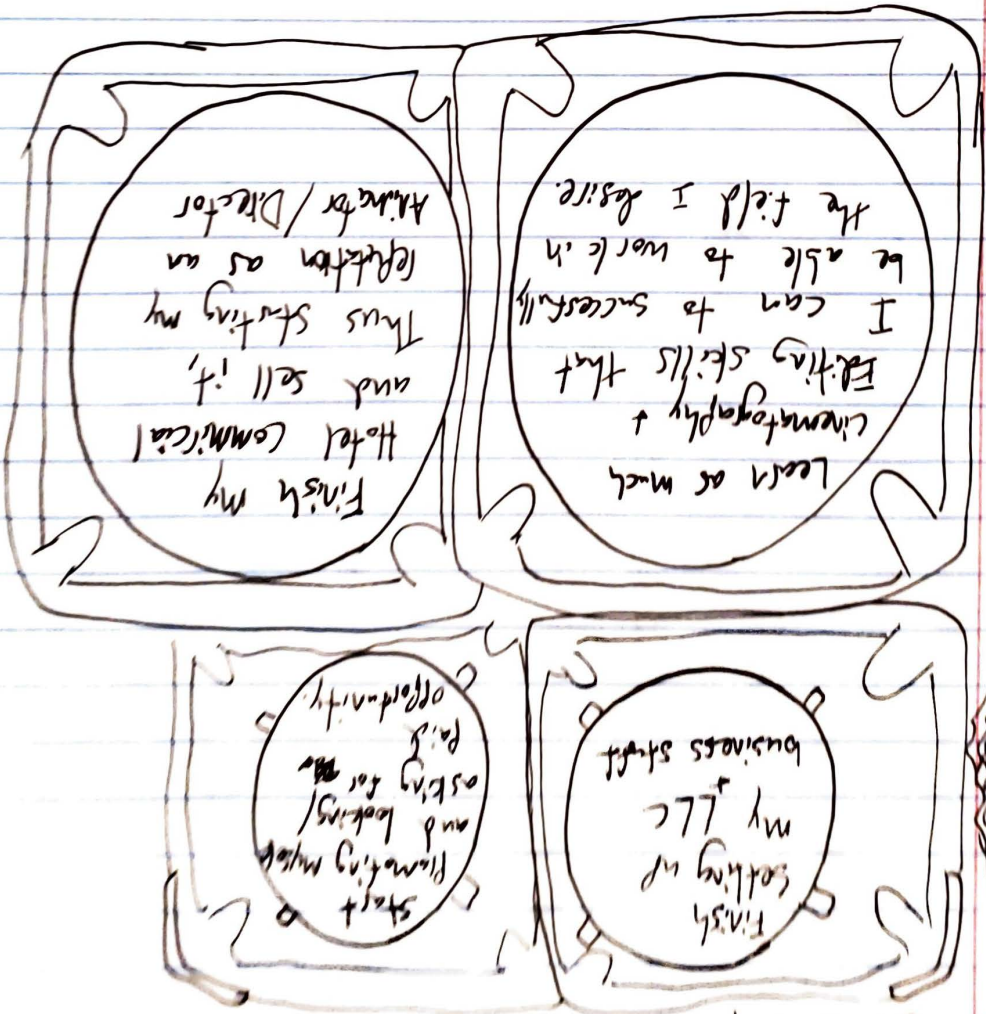 Finish
setting up
my LLC
+
business stuff
Start
Promoting myself
and looking/
asking for
paid
opportunity.
Learn as much
cinematography +
Editing skills that
I can to succesfully
be able to work in
the field I desire.
Finish my
Hotel Commircial
and sell it,
Thus starting my
reputation as an
Animator/Director